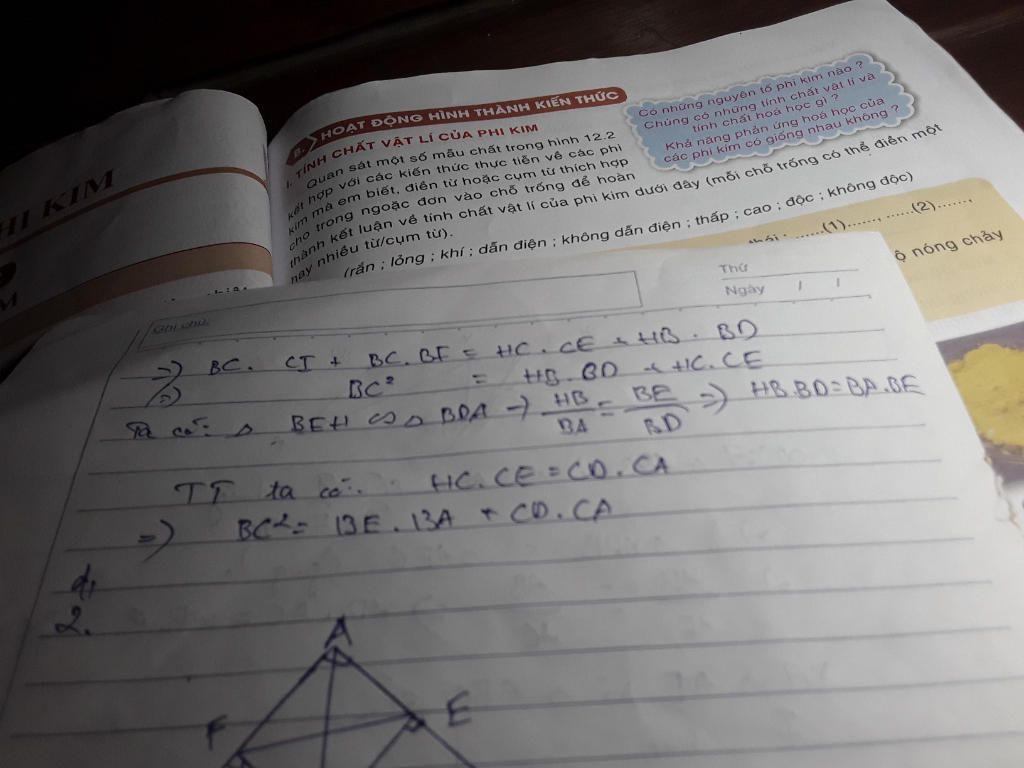 HI KIM
M
B. HOẠT ĐỘNG HÌNH THÀNH KIẾN THỨC
I. TÍNH CHẤT VẬT LÍ CỦA PHI KIM
Quan sát một số mẫu chất trong hình 12.2
kết hợp với các kiến thức thực tiễn về các phi
kim mà em biết, điền từ hoặc cụm từ thích hợp
cho trong ngoặc đơn vào chỗ trống để hoàn
thành kết luận về tính chất vật lí của phi kim dưới đây (mỗi chỗ trống có thể điền một
hay nhiều từ/cụm từ).
(rắn ; lỏng ; khí ; dẫn điện ; không dẫn điện ; thấp ; cao ; độc ; không độc)
Có những nguyên tố phi kim nào ?
Chúng có những tính chất vật lí và
tính chất hoá học gì ?
Khả năng phản ứng hoá học của
các phi kim có giống nhau không ?
thái : .......(1)......., ......(2).......,
ộ nóng chảy
Thứ
Ngày / /
Ghi chú:
=) BC. CI + BC.BF = HC.CE + HB. BD
=) BC² = HB.BD + HC.CE
Ta có: △ BEH ∽ △ BDA → HB/BA = BE/BD =) HB.BD = BA.BE
TT ta có: HC.CE = CD.CA
=) BC² = BE.BA + CD.CA
d,
2.
A
F
E